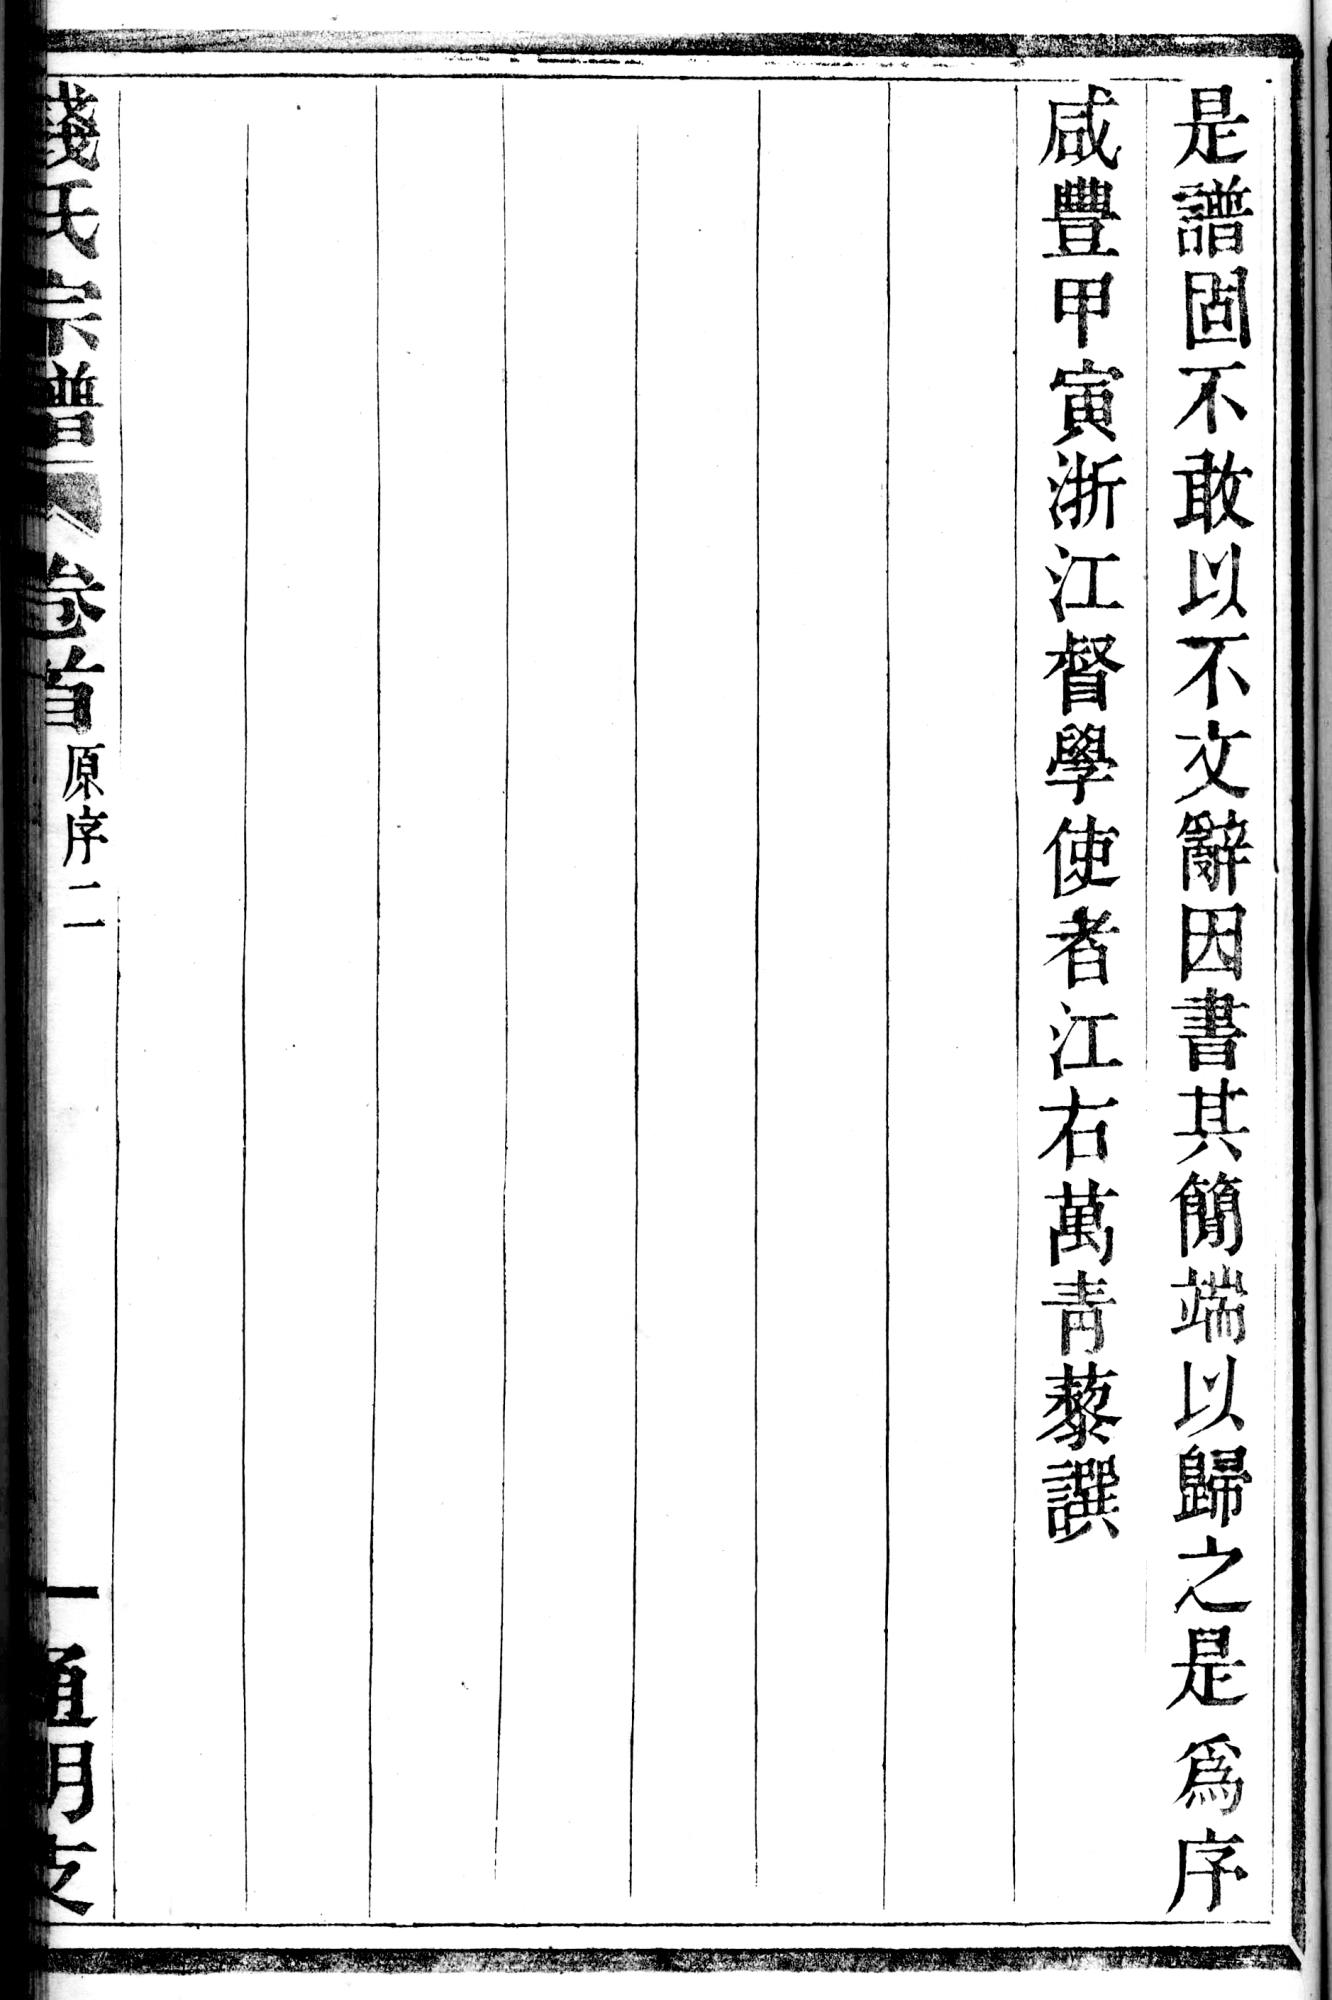 是譜固不敢以不文辭因書其簡端以歸之是為序
咸豐甲寅浙江督學使者江右萬青藜譔
錢氏宗譜
卷首
原序二
一
通明支